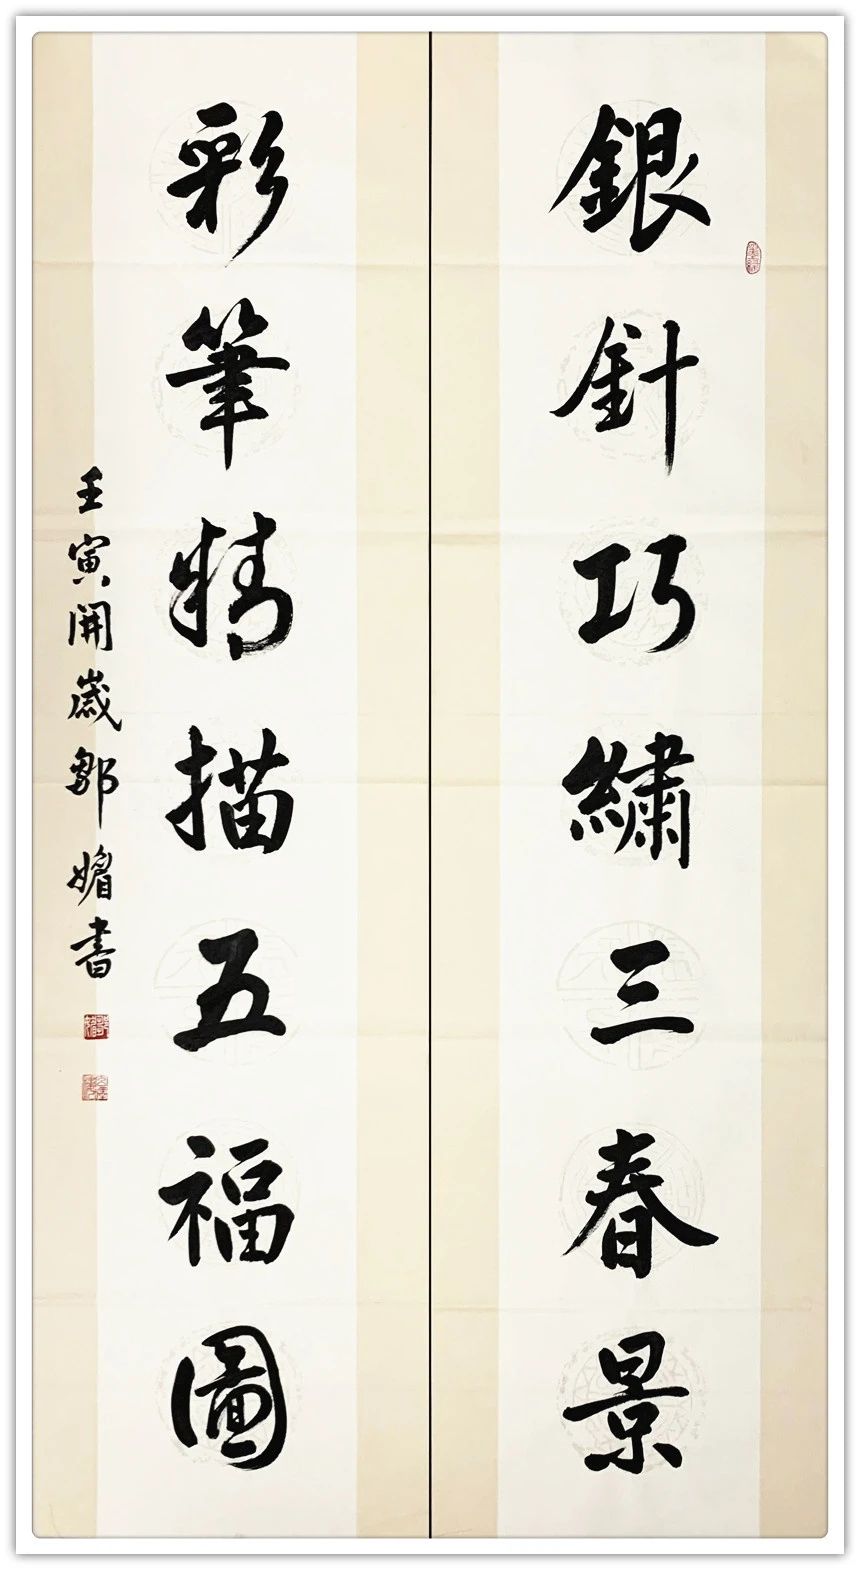 銀針巧繡三春景
彩筆精描五福圖
壬寅開歲鄒媚書